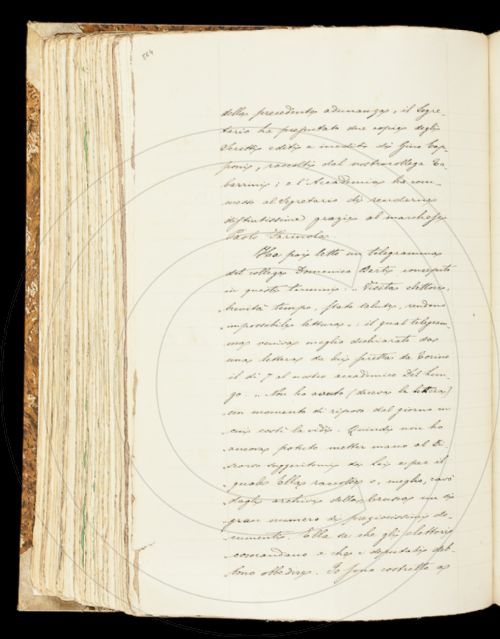 564
della precedente adunanza, il Segre-
tario ha presentato due copie degli
Scritti editi e inediti di Gino Cap-
poni, raccolti dal nostro collega Ta-
barrini; e l'Accademia ha com-
messo al Segretario di renderne
distintissime grazie al marchese
Paolo Farinola.
Ha poi letto un telegramma
del collega Domenico Berti concepito
in questi termini: "Visita elettori,
brevità tempo, stato salute, rendono
impossibile lettura.": il qual telegram-
ma veniva meglio dichiarato da
una lettera da lui scritta da Torino
il dì 7 al nostro accademico Del Lun-
go. "Non ho avuto (diceva la lettera)
un momento di riposo dal giorno in
cui costì la vidi. Quindi non ho
ancora potuto metter mano al Di-
scorso suggeritomi da lei e per il
quale Ella raccolse o, meglio, cavò
dagli archivi della Crusca un sì
gran numero di preziosissimi do-
cumenti. Ella sa che gli elettori
comandano e che i deputati deb-
bono obbedire. Io sono costretto a